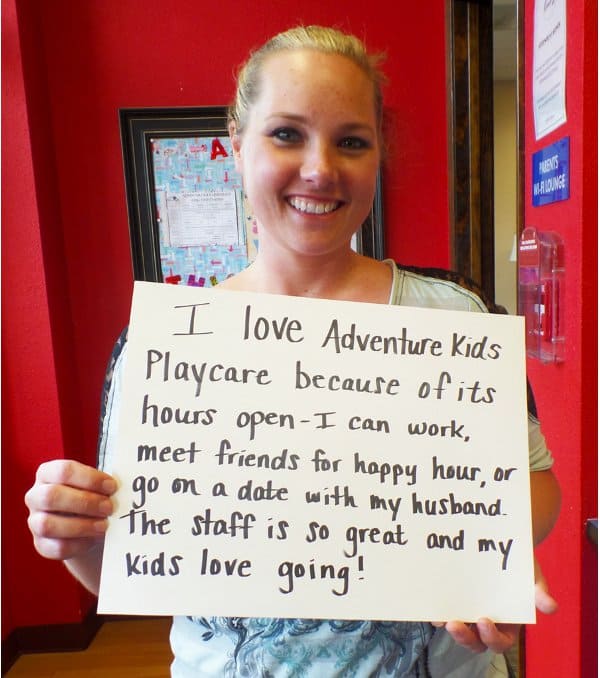 A
PARENTS
WI-FI LOUNGE
I love Adventure Kids
Playcare because of its
hours open - I can work,
meet friends for happy hour, or
go on a date with my husband.
The staff is so great and my
kids love going!